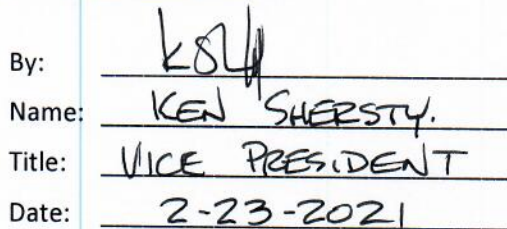 By:
Name: KEN SHERSTY.
Title: VICE PRESIDENT
Date: 2-23-2021